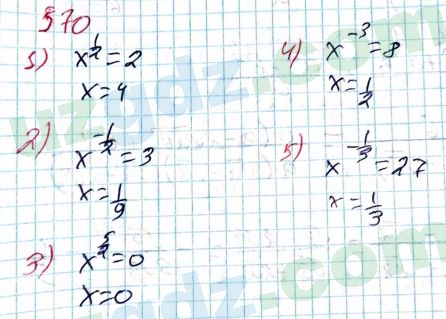 570
1) x^{1/2} = 2
x = 4
2) x^{-1/2} = 3
x = 1/9
3) x^{5/2} = 0
x = 0
4) x^{-3} = 8
x = 1/2
5) x^{-1/3} = 27
x = 1/3
uzgdz.com